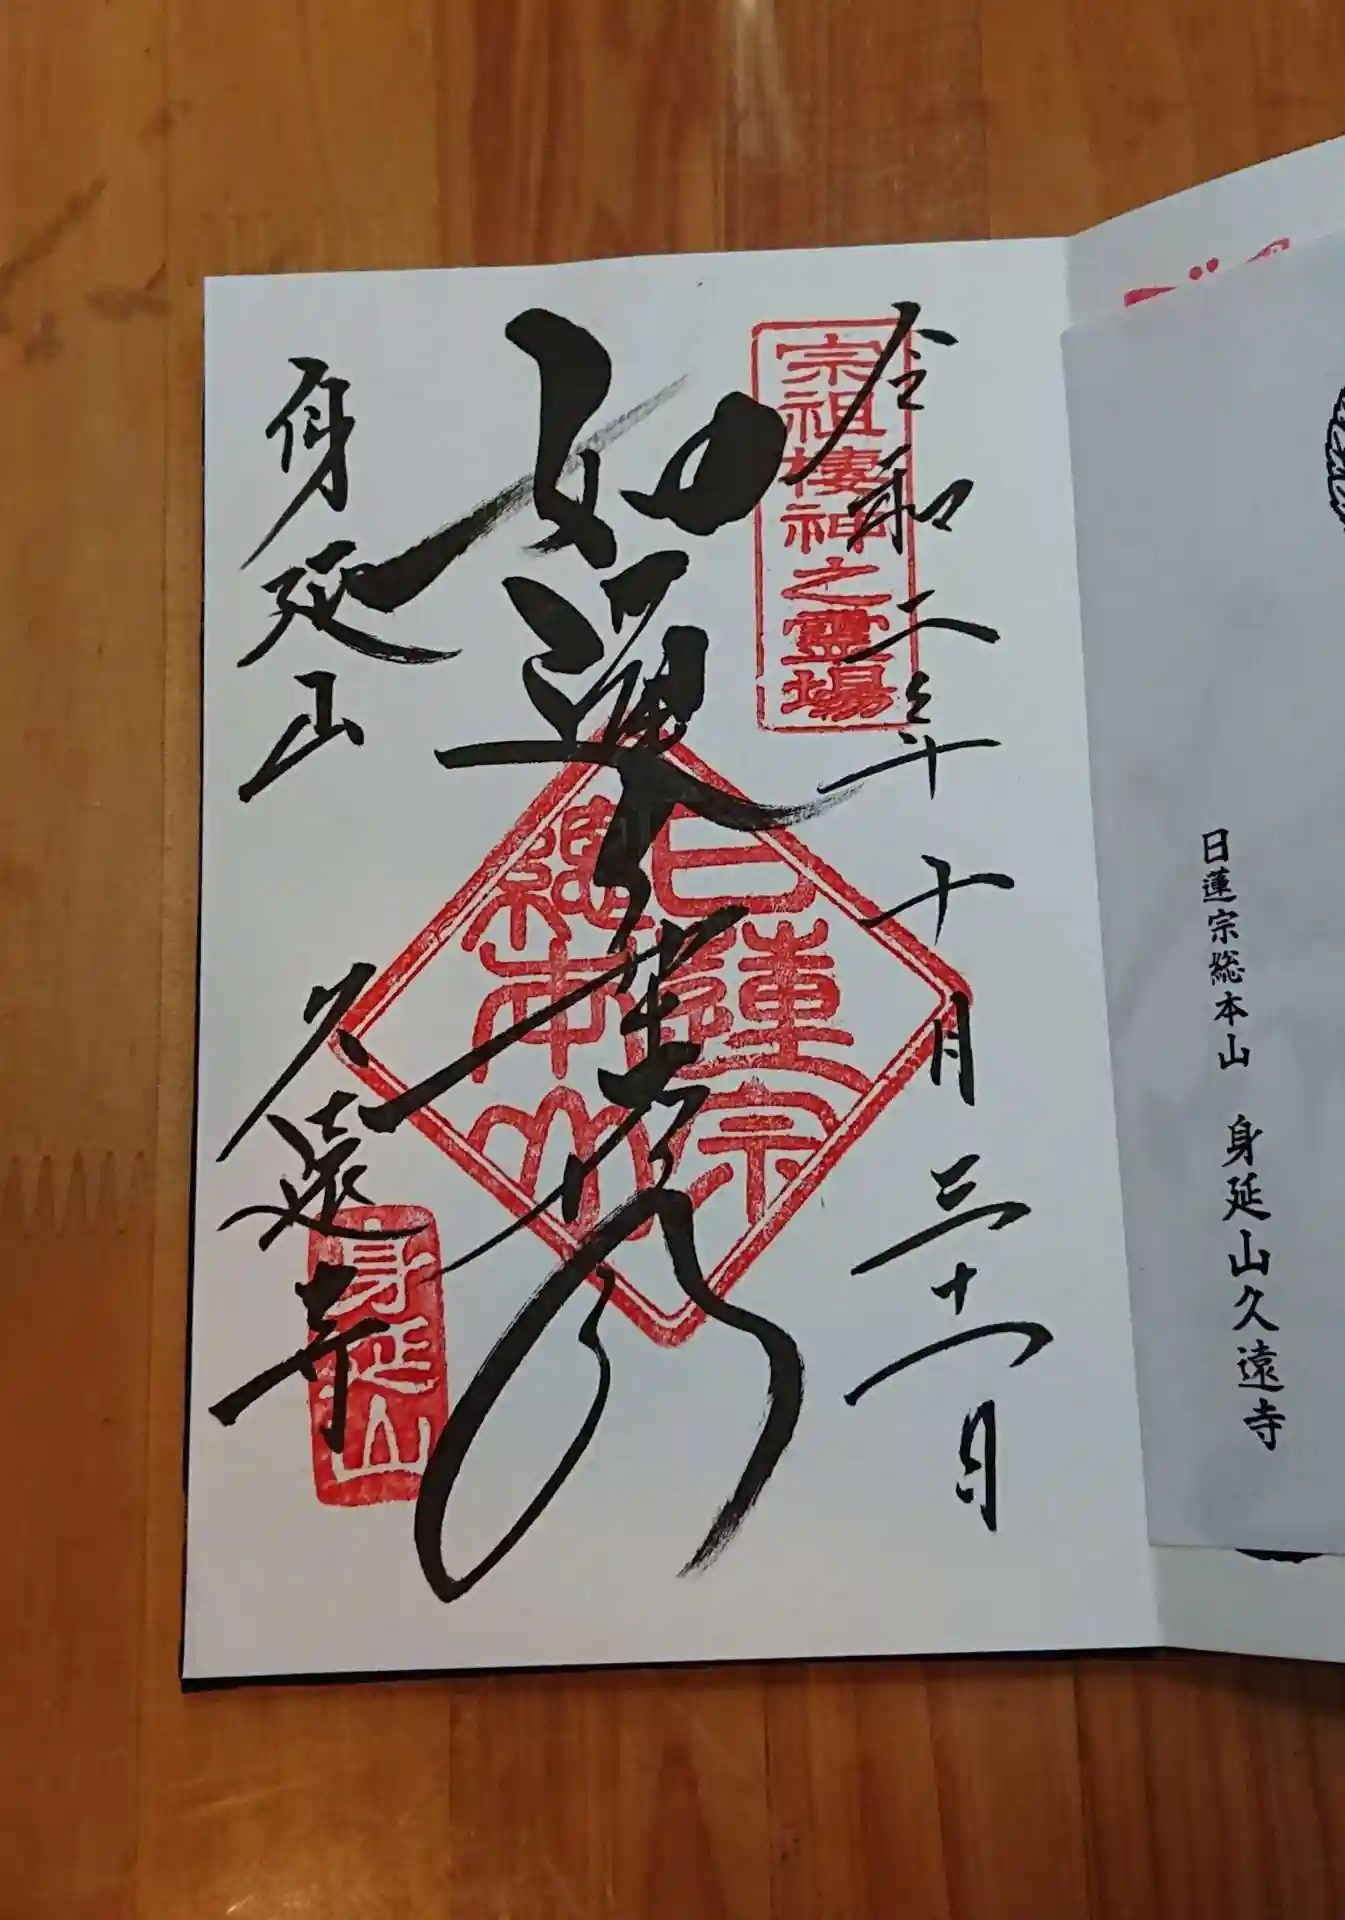 日蓮宗総本山 身延山久遠寺
令和二年十月三十一日
宗祖棲神之靈場
如蓮華在水
日蓮宗
總本山
身延山 久遠寺
身延山